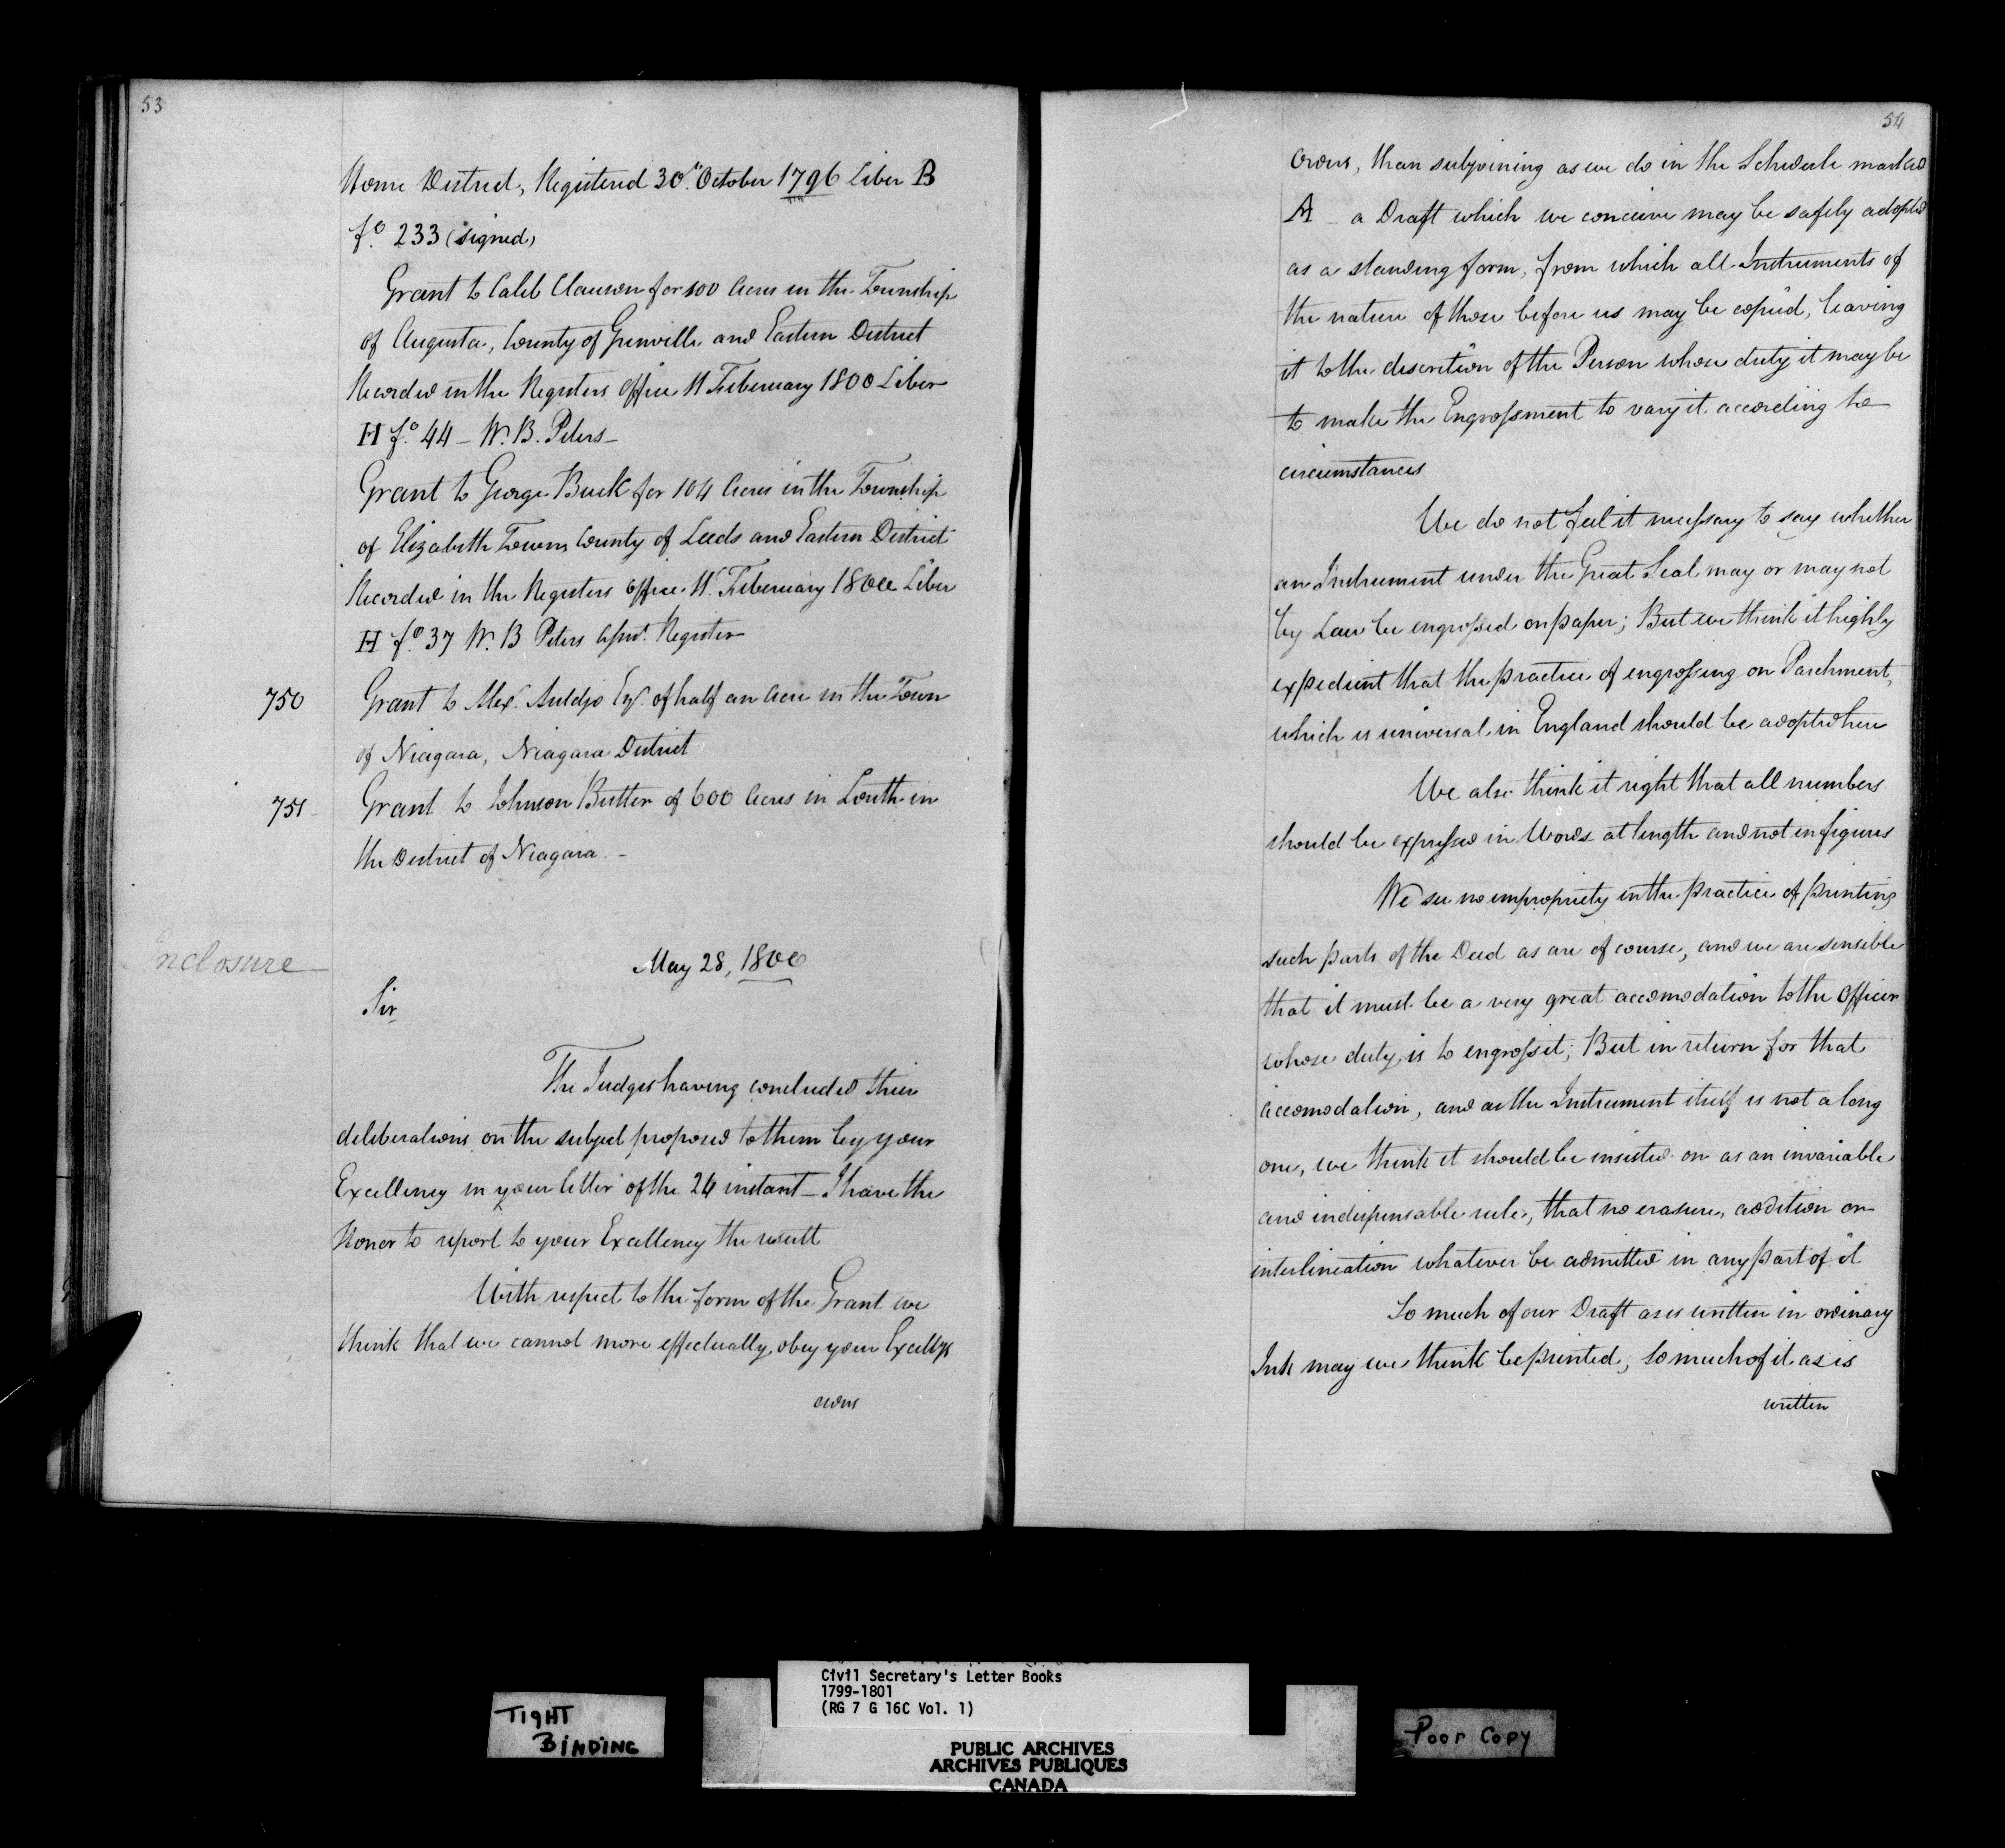 53
Home District, Registered 30th October 1796 Liber B
fo. 233 (signed)
Grant to Caleb Clauson for 100 Acres in the Township
of Augusta, County of Grenville and Eastern District
Recorded in the Registers Office 11 Feberuary 1800 Liber
H fo. 44 – W. B. Peters –
Grant to George Buck for 104 Acres in the Township
of Elizabeth Town County of Leeds and Eastern District
Recorded in the Registers Office 11 Feberuary 1800 Liber
H fo. 37 W. B Peters Assist. Register
750 Grant to Alexr. Auldjo Esqr. of half an Acre in the Town
of Niagara, Niagara District
751 Grant to Johnson Butler of 600 Acres in Louth in
the District of Niagara. –
Inclosure
May 28, 1800
Sir
The Judges having concluded their
deliberations on the subject proposed to them by your
Excellency in your letter of the 24 instant – I have the
Honor to report to your Excellency the result
With respect to the form of the Grant we
think that we cannot more effectually obey your Excellys
orders
54
orders, than subjoining as we do in the Schedule marked
A – a Draft which we conceive may be safely adopted
as a standing form, from which all Instruments of
the nature of those before us may be copied, leaving
it to the discretion of the Person whose duty it may be
to make the Engrossment to vary it according to
circumstances
We do not feel it necessary to say whether
an Instrument under the Great Seal may or may not
by Law be engrossed on paper; But we think it highly
expedient that the practice of engrossing on Parchment,
which is universal in England should be adopted here
We also think it right that all numbers
should be expressed in Words at length and not in figures
We see no impropriety in the practice of printing
such parts of the Deed as are of course, and we are sensible
that it must be a very great accomodation to the Officer
whose duty is to engross it; But in return for that
accomodation, and as the Instrument itself is not a long
one, we think it should be insisted on as an invariable
and indispensable rule, that no erasure, addition or
interlineation whatever be admitted in any part of it
So much of our Draft as is written in ordinary
Ink may we think be printed; So much of it as is
written
TIGHT
BINDING
Civil Secretary's Letter Books
1799-1801
(RG 7 G 16C Vol. 1)
PUBLIC ARCHIVES
ARCHIVES PUBLIQUES
CANADA
Poor Copy